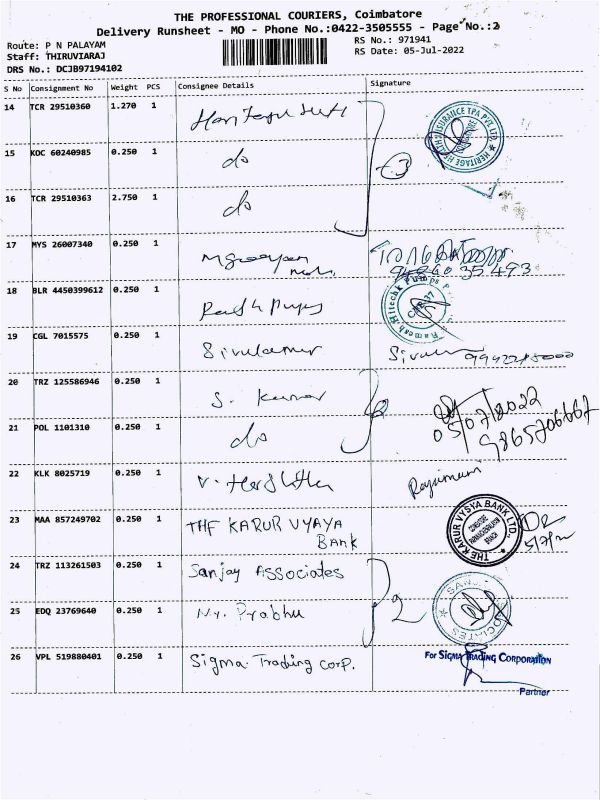 THE PROFESSIONAL COURIERS, Coimbatore
Delivery Runsheet - MO - Phone No.:0422-3505555 - Page No.:2
Route: P N PALAYAM
RS No.: 971941
Staff: THIRUVIARAJ
RS Date: 05-Jul-2022
DRS No.: DCJB97194102
S No Consignment No Weight PCS Consignee Details Signature
14 TCR 29510360 1.270 1
HERITAGE HEALTH INSURANCE TPA PVT LTD.
15 KOC 60240985 0.250 1 do 3
16 TCR 29510363 2.750 1 do
17 MYS 26007340 0.250 1
94860 35493
18 BLR 4450399612 0.250 1
Ramesh Hitechk Pumps
19 CGL 7015575 0.250 1 Sivakumar
20 TRZ 125586946 0.250 1 S. Kumar 2
05/07/2022
21 POL 1101310 0.250 1 do 9865706667
22 KLK 8025719 0.250 1
23 MAA 857249702 0.250 1 THE KARUR VYAYA
BANK
THE KARUR VYSYA BANK LTD.,
5/7/22
24 TRZ 113261503 0.250 1 Sanjay Associates
25 EDQ 23769640 0.250 1 Ny. Prabhu 2
26 VPL 519880401 0.250 1 Sigma Trading corp.
For SIGMA TRADING CORPORATION
Partner